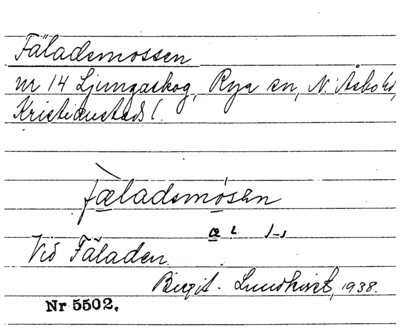 Fäladsmossen
nr 14 Ljungaskog, Rya sn, N. Åsbo hd,
Kristianstads l.
fæladsmósen
a
Vid Fäladen.
Birgit Lundkvist, 1938.
Nr 5502.